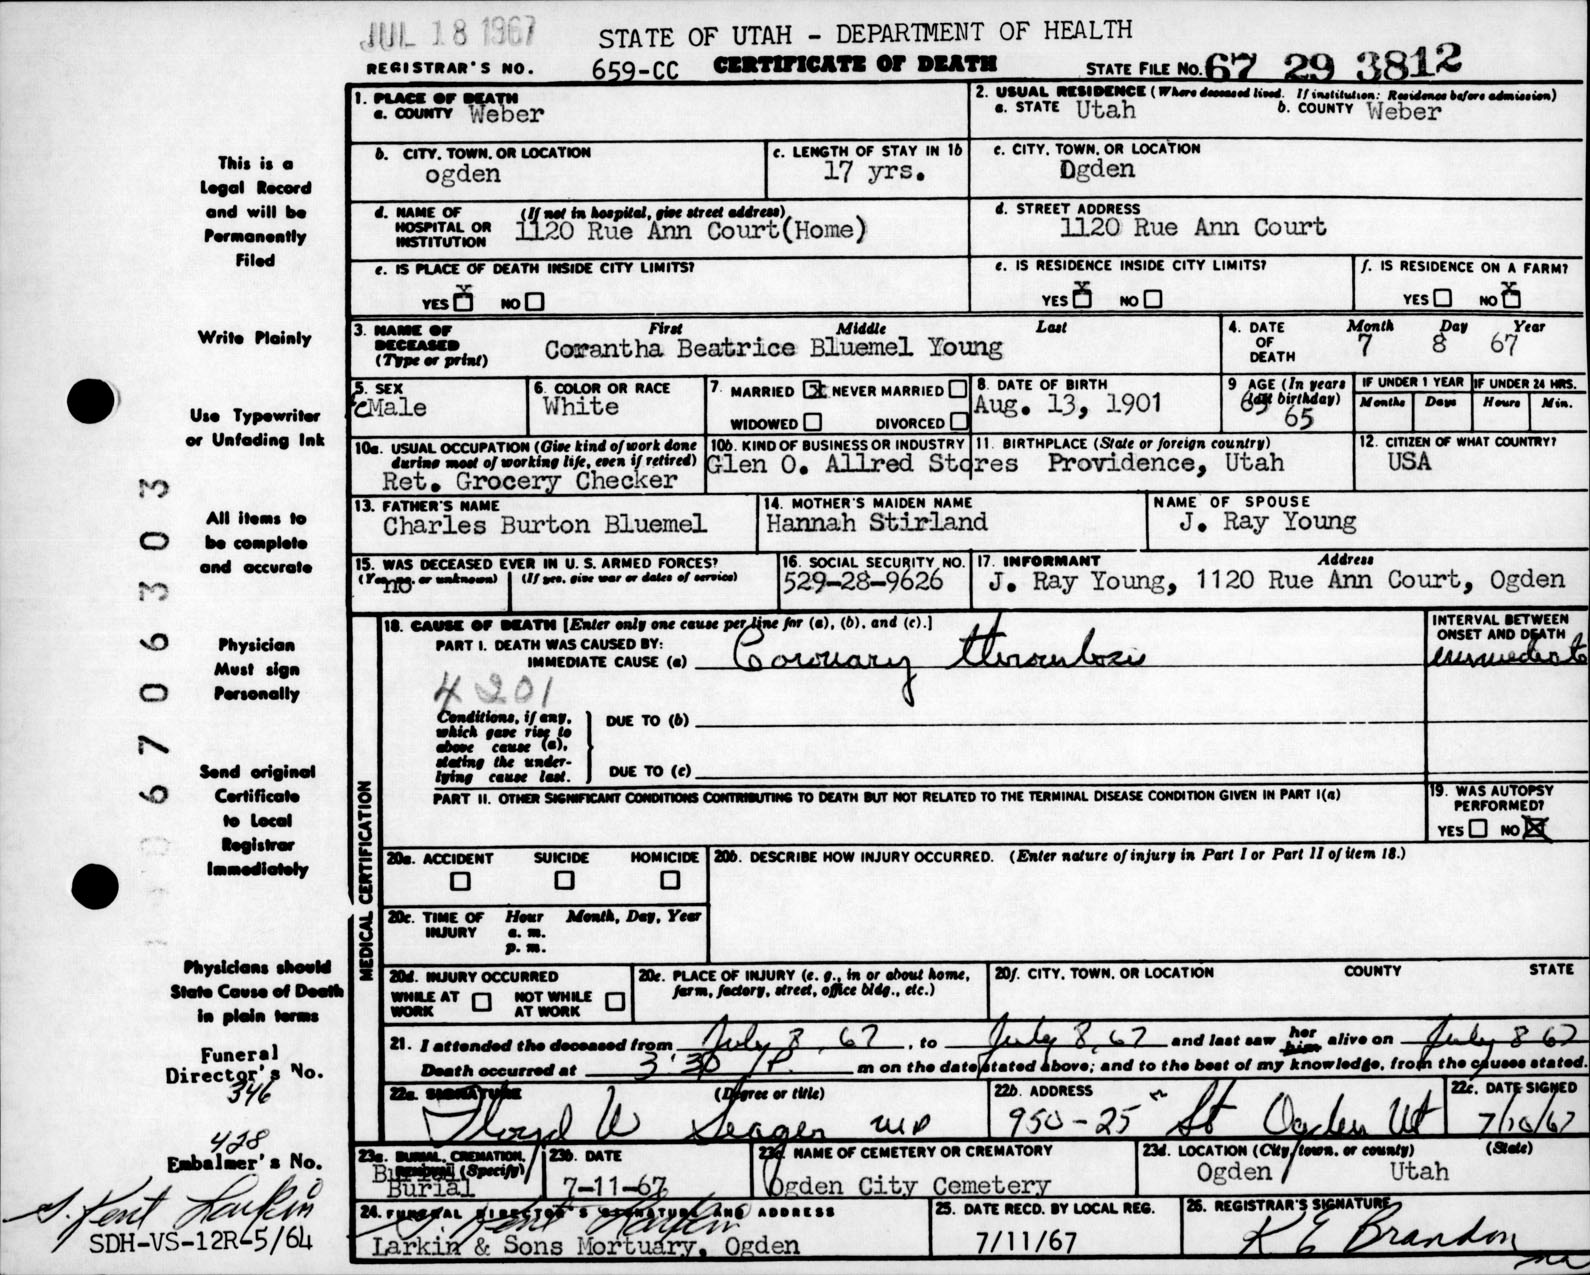 JUL 18 1967
STATE OF UTAH - DEPARTMENT OF HEALTH
REGISTRAR'S NO. 659-CC CERTIFICATE OF DEATH STATE FILE NO. 67 29 3812
This is a
Legal Record
and will be
Permanently
Filed
Write Plainly
Use Typewriter
or Unfading Ink
All items to
be complete
and accurate
Physician
Must sign
Personally
Send original
Certificate
to Local
Registrar
Immediately
Physicians should
State Cause of Death
in plain terms
Funeral
Director's No.
346
428
Embalmer's No.
S. Kent Larkin
SDH-VS-12R-5/64
6706303
1. PLACE OF DEATH
a. COUNTY Weber
2. USUAL RESIDENCE (Where deceased lived. If institution: Residence before admission)
a. STATE Utah b. COUNTY Weber
b. CITY, TOWN, OR LOCATION
ogden
c. LENGTH OF STAY IN 1b
17 yrs.
c. CITY, TOWN, OR LOCATION
Ogden
d. NAME OF HOSPITAL OR INSTITUTION (If not in hospital, give street address)
1120 Rue Ann Court(Home)
d. STREET ADDRESS
1120 Rue Ann Court
e. IS PLACE OF DEATH INSIDE CITY LIMITS?
YES X NO
e. IS RESIDENCE INSIDE CITY LIMITS?
YES X NO
f. IS RESIDENCE ON A FARM?
YES NO X
3. NAME OF DECEASED (Type or print) First Middle Last
Corantha Beatrice Bluemel Young
4. DATE OF DEATH Month Day Year
7 8 67
5. SEX
feMale
6. COLOR OR RACE
White
7. MARRIED X NEVER MARRIED
WIDOWED DIVORCED
8. DATE OF BIRTH
Aug. 13, 1901
9 AGE (In years last birthday)
65
65
IF UNDER 1 YEAR
Months Days
IF UNDER 24 HRS.
Hours Min.
10a. USUAL OCCUPATION (Give kind of work done
during most of working life, even if retired)
Ret. Grocery Checker
10b. KIND OF BUSINESS OR INDUSTRY
Glen O. Allred Stores
11. BIRTHPLACE (State or foreign country)
Providence, Utah
12. CITIZEN OF WHAT COUNTRY?
USA
13. FATHER'S NAME
Charles Burton Bluemel
14. MOTHER'S MAIDEN NAME
Hannah Stirland
NAME OF SPOUSE
J. Ray Young
15. WAS DECEASED EVER IN U. S. ARMED FORCES?
(Yes, no, or unknown) (If yes, give war or dates of service)
no
16. SOCIAL SECURITY NO.
529-28-9626
17. INFORMANT Address
J. Ray Young, 1120 Rue Ann Court, Ogden
MEDICAL CERTIFICATION
18. CAUSE OF DEATH [Enter only one cause per line for (a), (b), and (c).]
PART I. DEATH WAS CAUSED BY:
IMMEDIATE CAUSE (a) Coronary thrombosis
INTERVAL BETWEEN
ONSET AND DEATH
immediate
4201
Conditions, if any,
which gave rise to
above cause (a),
stating the under-
lying cause last.
DUE TO (b)
DUE TO (c)
PART II. OTHER SIGNIFICANT CONDITIONS CONTRIBUTING TO DEATH BUT NOT RELATED TO THE TERMINAL DISEASE CONDITION GIVEN IN PART I(a)
19. WAS AUTOPSY
PERFORMED?
YES NO X
20a. ACCIDENT SUICIDE HOMICIDE
20b. DESCRIBE HOW INJURY OCCURRED. (Enter nature of injury in Part I or Part II of item 18.)
20c. TIME OF INJURY Hour Month, Day, Year
a. m.
p. m.
20d. INJURY OCCURRED
WHILE AT WORK NOT WHILE AT WORK
20e. PLACE OF INJURY (e. g., in or about home,
farm, factory, street, office bldg., etc.)
20f. CITY, TOWN, OR LOCATION COUNTY STATE
21. I attended the deceased from July 8, 67, to July 8, 67 and last saw her him alive on July 8 67
Death occurred at 3:30 P. m on the date stated above; and to the best of my knowledge, from the causes stated.
22a. SIGNATURE (Degree or title)
Floyd W Seager MD
22b. ADDRESS
950-25 St Ogden Ut
22c. DATE SIGNED
7/10/67
23a. BURIAL, CREMATION, REMOVAL (Specify)
Burial
Burial
23b. DATE
7-11-67
23c. NAME OF CEMETERY OR CREMATORY
Ogden City Cemetery
23d. LOCATION (City, town, or county) (State)
Ogden Utah
24. FUNERAL DIRECTOR'S SIGNATURE AND ADDRESS
S. Kent Larkin
Larkin & Sons Mortuary, Ogden
25. DATE RECD. BY LOCAL REG.
7/11/67
26. REGISTRAR'S SIGNATURE
K E Brandon